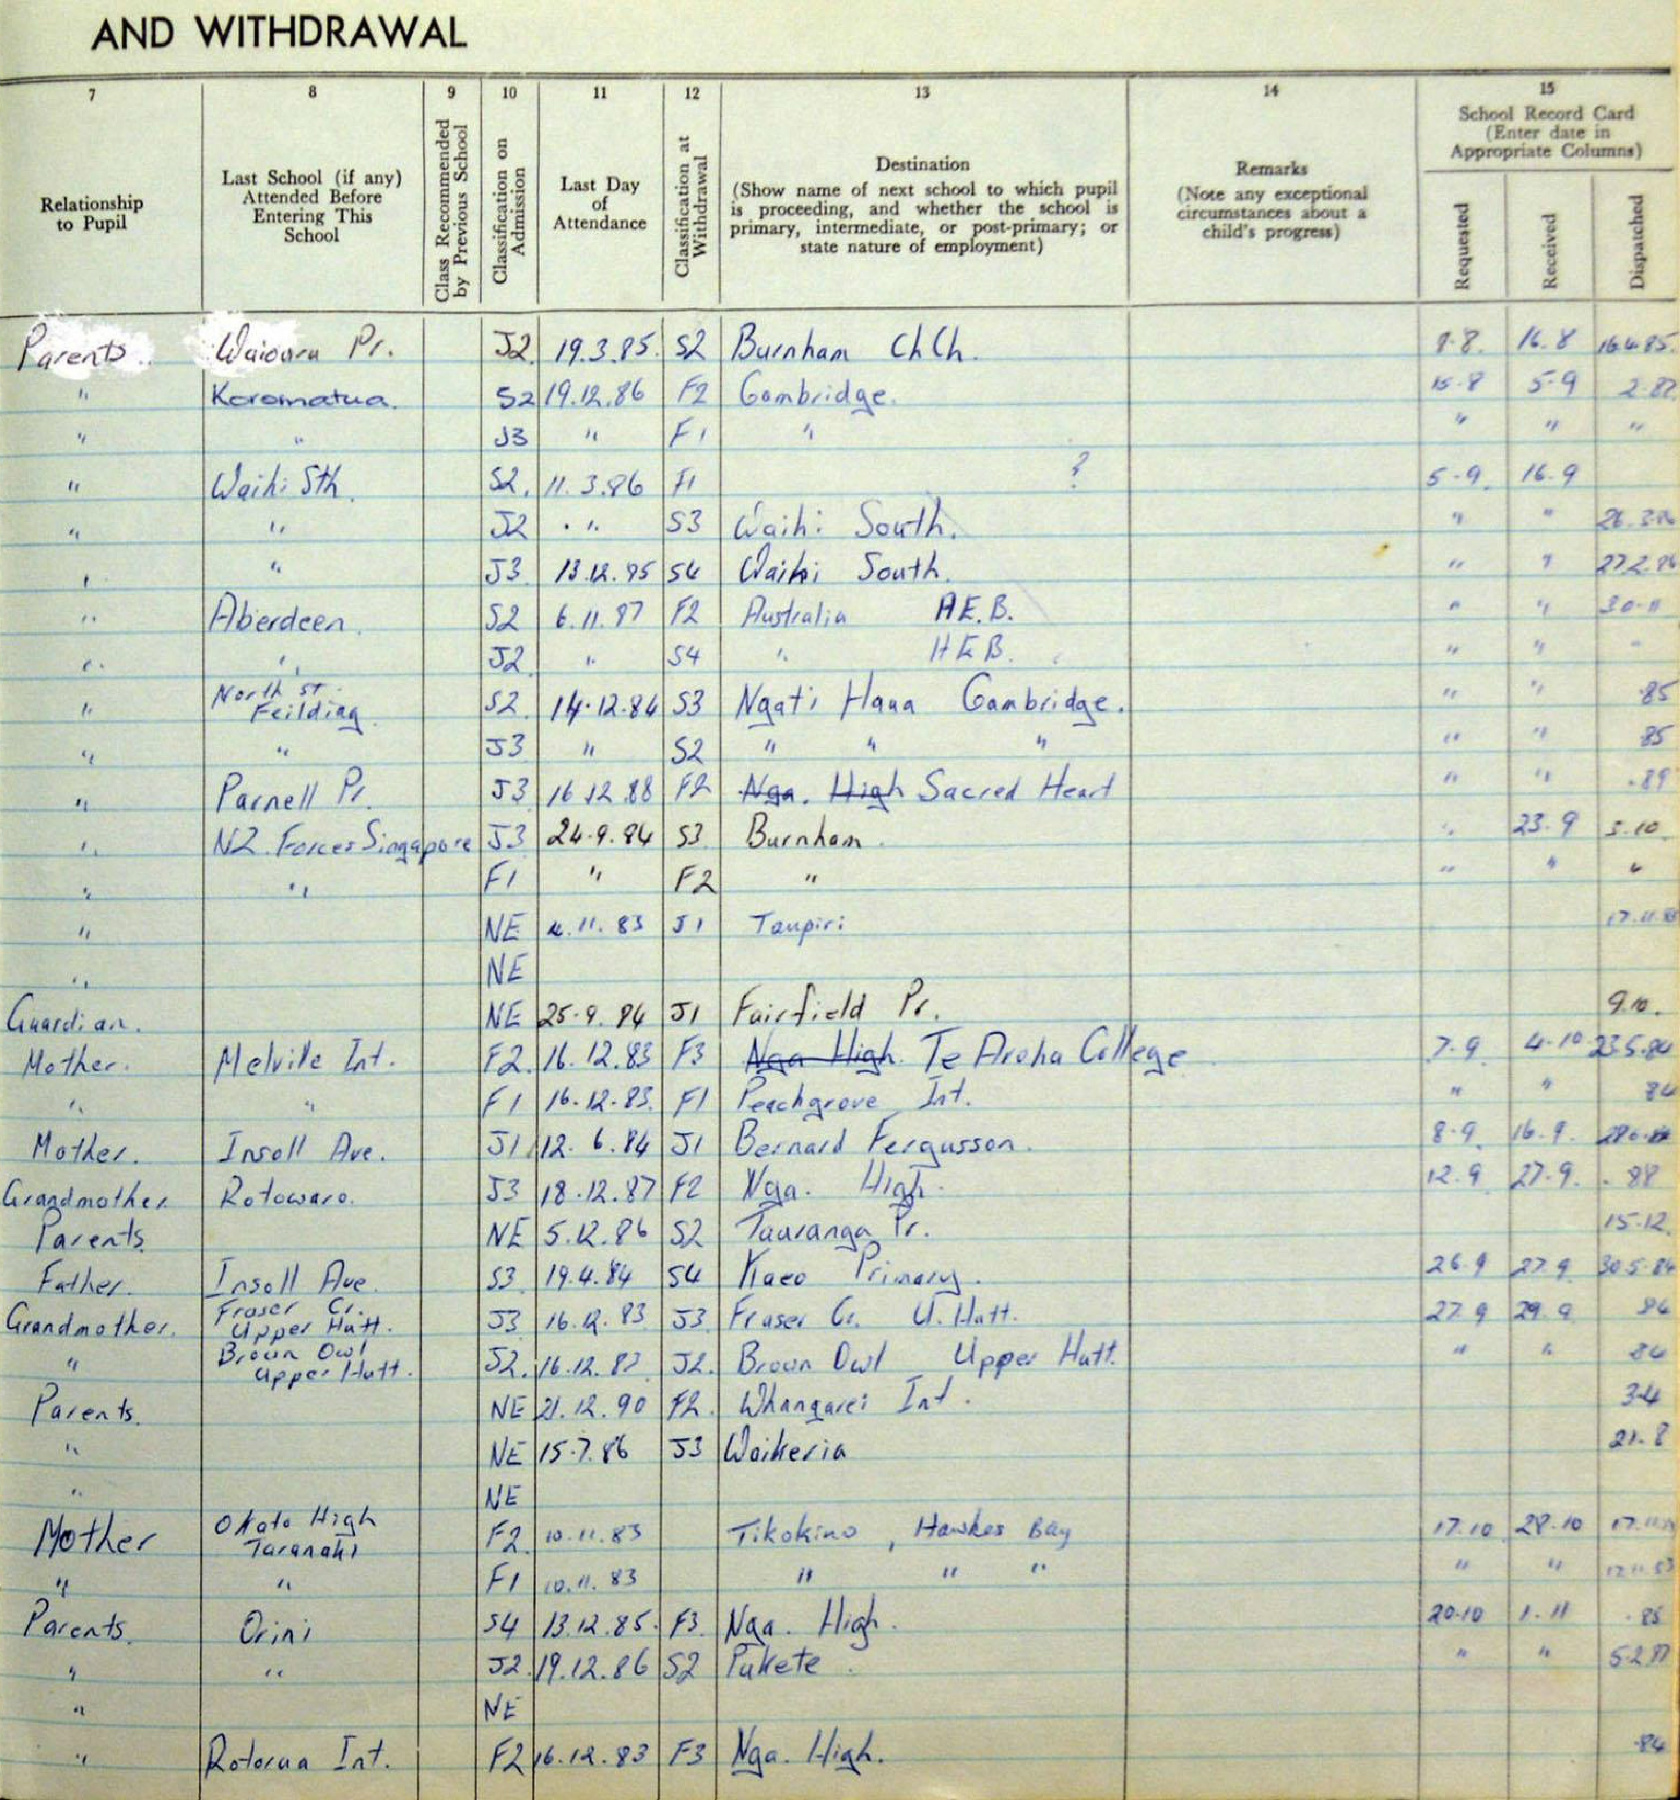 AND WITHDRAWAL
7 8 9 10 11 12 13 14 15
Relationship to Pupil
Last School (if any) Attended Before Entering This School
Class Recommended by Previous School
Classification on Admission
Last Day of Attendance
Classification at Withdrawal
Destination (Show name of next school to which pupil is proceeding, and whether the school is primary, intermediate, or post-primary; or state nature of employment)
Remarks (Note any exceptional circumstances about a child's progress)
School Record Card (Enter date in Appropriate Columns)
Requested Received Dispatched
Parents Waiouru Pr. J2. 19.3.85. S2 Burnham ChCh. 8.8. 16.8 16.4.85.
" Koromatua. S2 19.12.86 F2 Cambridge. 15.8 5.9 2.87.
" " J3 " F1 " " " "
" Waihi Sth. S2. 11.3.86 F1 ? 5.9. 16.9
" " J2 " S3 Waihi South. " "
" " J3 13.12.85 S4 Waihi South. " " 27.2.86
" Aberdeen. S2 6.11.87 F2 Australia A.E.B. " " 30.11
" " J2 " S4 " " " "
" North St. Feilding. S2. 14.12.84 S3 Ngati Haua Cambridge. " " .85
" " J3 " S2 " " " " " 85
" Parnell Pr. J3 16.12.88 F2 Nga. High Sacred Heart " " .89
" NZ. Forces Singapore J3 24.9.84 S3 Burnham. " 23.9 3.10
" " F1 " F2 " " " "
" NE 4.11.83 J1 Taupiri 17.11.83
" NE
Guardian. NE 25.9.84 J1 Fairfield Pr. 9.10.
Mother. Melville Int. F2. 16.12.83 F3 Nga High. Te Aroha College 7.9. 4.10 23.5.84
" " F1 16.12.83. F1 Peachgrove Int. " " 84
Mother. Insoll Ave. J1 12.6.84 J1 Bernard Fergusson. 8.9. 16.9.
Grandmother Rotowaro. J3 18.12.87 F2 Nga. High. 12.9 27.9. .88
Parents. NE 5.12.86 S2 Tauranga Pr. 15.12.
Father. Insoll Ave. S3 19.4.84 S4 Kaeo Primary. 26.9 27.9 30.5.84
Grandmother. Fraser Cr. Upper Hutt. J3 16.12.83 J3 Fraser Cr. U. Hutt. 27.9 29.9 84
" Brown Owl Upper Hutt. J2. 16.12.83 J2. Brown Owl Upper Hutt. " " 84
Parents. NE 21.12.90 F2. Whangarei Int. 3.4
" NE 15.7.86 J3 Waikeria 21.8
" NE
Mother Okato High Taranaki F2 10.11.83 Tikokino, Hawkes Bay 17.10 28.10
" " F1 10.11.83 " " " " "
Parents. Orini S4 13.12.85. F3. Nga. High. 20.10 1.11 .86
" " J2. 19.12.86 S2 Pukete. " " 5.2.87
" NE
" Rotorua Int. F2 16.12.83 F3 Nga. High. .84